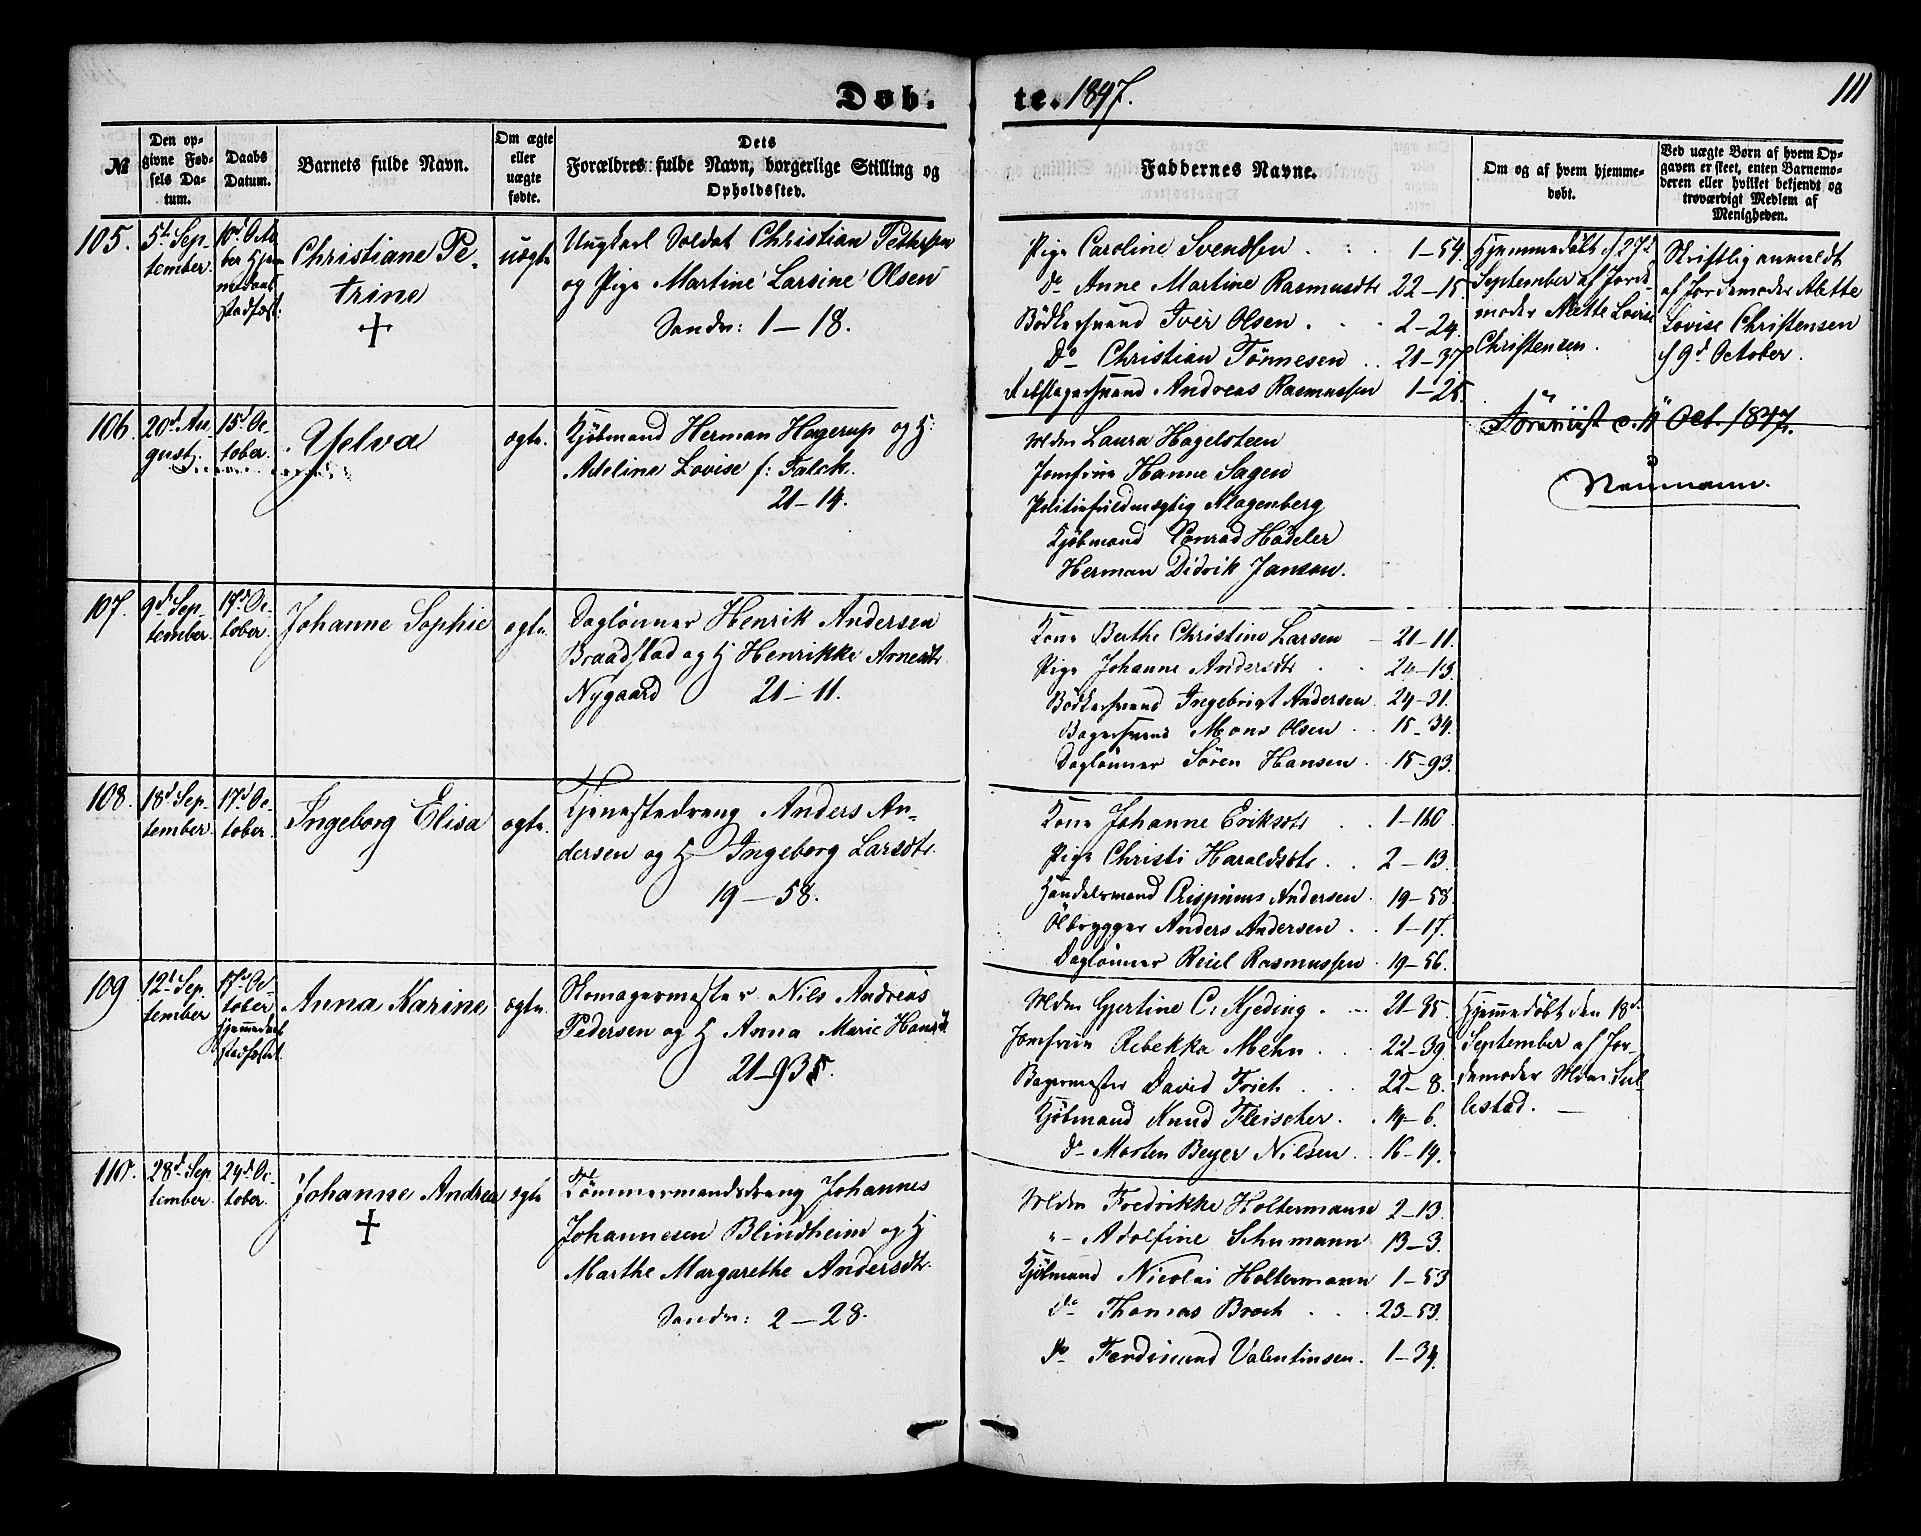 Døb. te. 1847. 111
№
Den op-
givne Fød-
sels Da-
tum.
Daabs
Datum.
Barnets fulde Navn.
Om ægte
eller
uægte
fødte.
Dets
Forældres fulde Navn, borgerlige Stilling og
Opholdssted.
Faddernes Navne.
Om og af hvem hjemme-
døbt.
Ved uægte Børn af hvem Op-
gaven er skeet, enten Barnemo-
deren eller hvilket bekjendt og
troværdigt Medlem af
Menigheden.
105.
5t Sep-
tember.
10d Octo
ber Hjem
medaab
stadfæst:
Christiane Pe-
trine
+
uægte
Ungkarl Soldat Christian Pettersen
og Pige Martine Larsine Olsen
Sandv: 1-18.
Pige Caroline Svendsen 1-54.
do Anne Martine Rasmusdtr 22-15
Bödkersvend Iver Olsen 2-24.
Do Christian Tönnesen 21-37
Rebslagersvend Andreas Rasmussen 1-25.
Hjemmedöbt d 27d
September af Jorde-
moder Alette Lovise
Christensen.
Skriftlig anmeldt
af Jordemoder Alette
Lovise Christensen
d 9d October.
106.
20d Au-
gust.
15d Oc-
tober.
Yelva
ægte.
Kjöbmand Herman Hagerup og H:
Adeline Lovise f: Falck.
21-14.
Mdm Laura Hagelsteen
Jomfrue Hanne Sagen
Politiefuldmægtig Klagenberg
Kjöbmand Conrad Hödeler
Herman Didrik Janson.
Oct. 1847.
Neumann.
107.
9d Sep-
tember.
17d Oc-
tober.
Johanne Sophie
ægte.
Daglönner Henrik Andersen
Braadstad og H Henrikke Arnesdtr
Nygaard 21-11.
Kone Berthe Christine Larsen 21-11.
Pige Johanne Andersdtr 24-13
Bödkersvend Ingebrigt Andersen 24-31.
Bagersvend Mons Olsen 15-34.
Daglönner Sören Hansen 15-93.
108.
18d Sep-
tember.
17d Oc-
tober.
Ingeborg Elisa
ægte.
Tjenestedreng Anders An-
dersen og H Ingeborg Larsdtr.
19-58.
Kone Johanne Eriksdtr 1-160.
Pige Christi Haraldsdtr. 2-13
Handelsmand Crispinus Andersen 19-58.
Ölbrygger Anders Andersen 1-17.
Daglönner Reiel Rasmussen 19-56.
109
12d Sep.
tember
17d Oc-
tober
Hjemmedaab
stadfæstet.
Anna Karine
ægte.
Skomagermester Nils Andreas
Pedersen og H Anna Marie Hansd.
21-935.
Mdm Gjertine C. Kjeding 21-35
Jomfrue Rebekka Mehn 22-39
Bagermester David Frich 22-8.
Kjöbmand Knud Fleischer. 14-6.
do Morten Beyer Nilsen 16-19.
Hjemmedöbt den 18d
September af Jor-
demoder Mdm Sul-
lestad.
110.
28d Sep
tember
24d Oc-
tober.
Johanne Andrea
+
ægte
Tömmermandsdreng Johannes
Johannesen Blindheim og H
Marthe Margarethe Andersdtr.
Sandv: 2-28.
Mdm Fredrikke Holtermann 2-13.
" Adolfine Schumann 13-3.
Kjöbmand Nicolai Holtermann 1-53
do Thomas Broch 23-53.
do Ferdinand Valentinsen. 1-34.